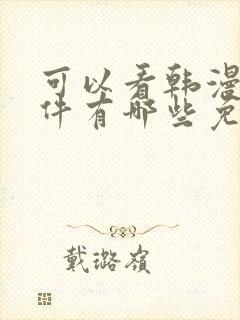 可以看韩漫
件有哪些免
戴璐嶺